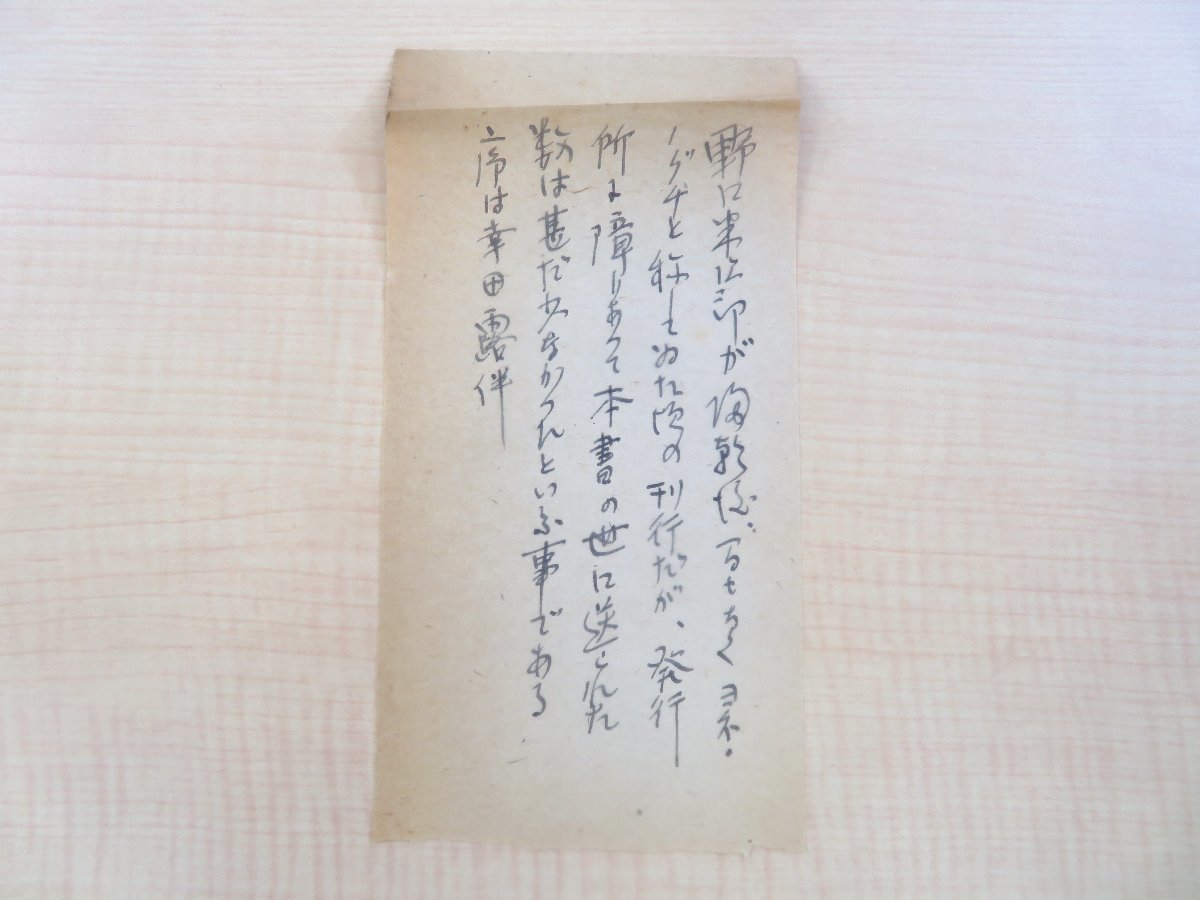 野口米次郎が帰朝後、間もなくヨネ・
ノグチと称してゐた頃の刊行だが、発行
所に障りあつて本書の世に送られた
数は甚だ少なかつたといふ事である
序は幸田露伴